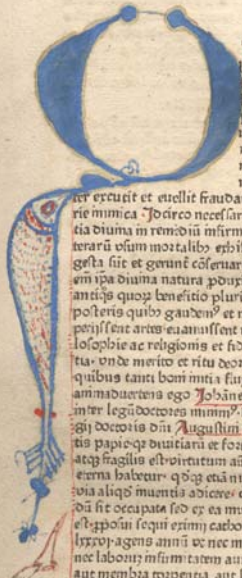 ter excutit et euellit frauda
rie inimica. Idcirco necessar
tia diuina in remediũ infirm
terarũ vsum mortaliby exhi
gesta sũt et gerunt cõseruar
em ipa diuina natura pdux
antiqs quoqꝫ benefitio pluri
posteris quiby gaudemꝰ et n
perijssent artes euanuissent
losophie ac religionis et fid
tia. vnde merito et ritu deor
quibus tanti boni initia fiũ
animaduertens ego Johãne
inter legũ doctores minimꝰ.
gij doctoris dñi Augustini
tis papieqꝫ diuitiarũ et for
atqꝫ fragilis est. virtutum aũ
eterna habetur. qdcqꝫ etiã ni
via aliqd inuentia adicere.
dũ sit occupata sed ex ea mi
est. pposui sequi eximij catho
lxxxvi. agens annũ vt nec m
nec laborũ infirmitatem au
aut membra torpentia. aut